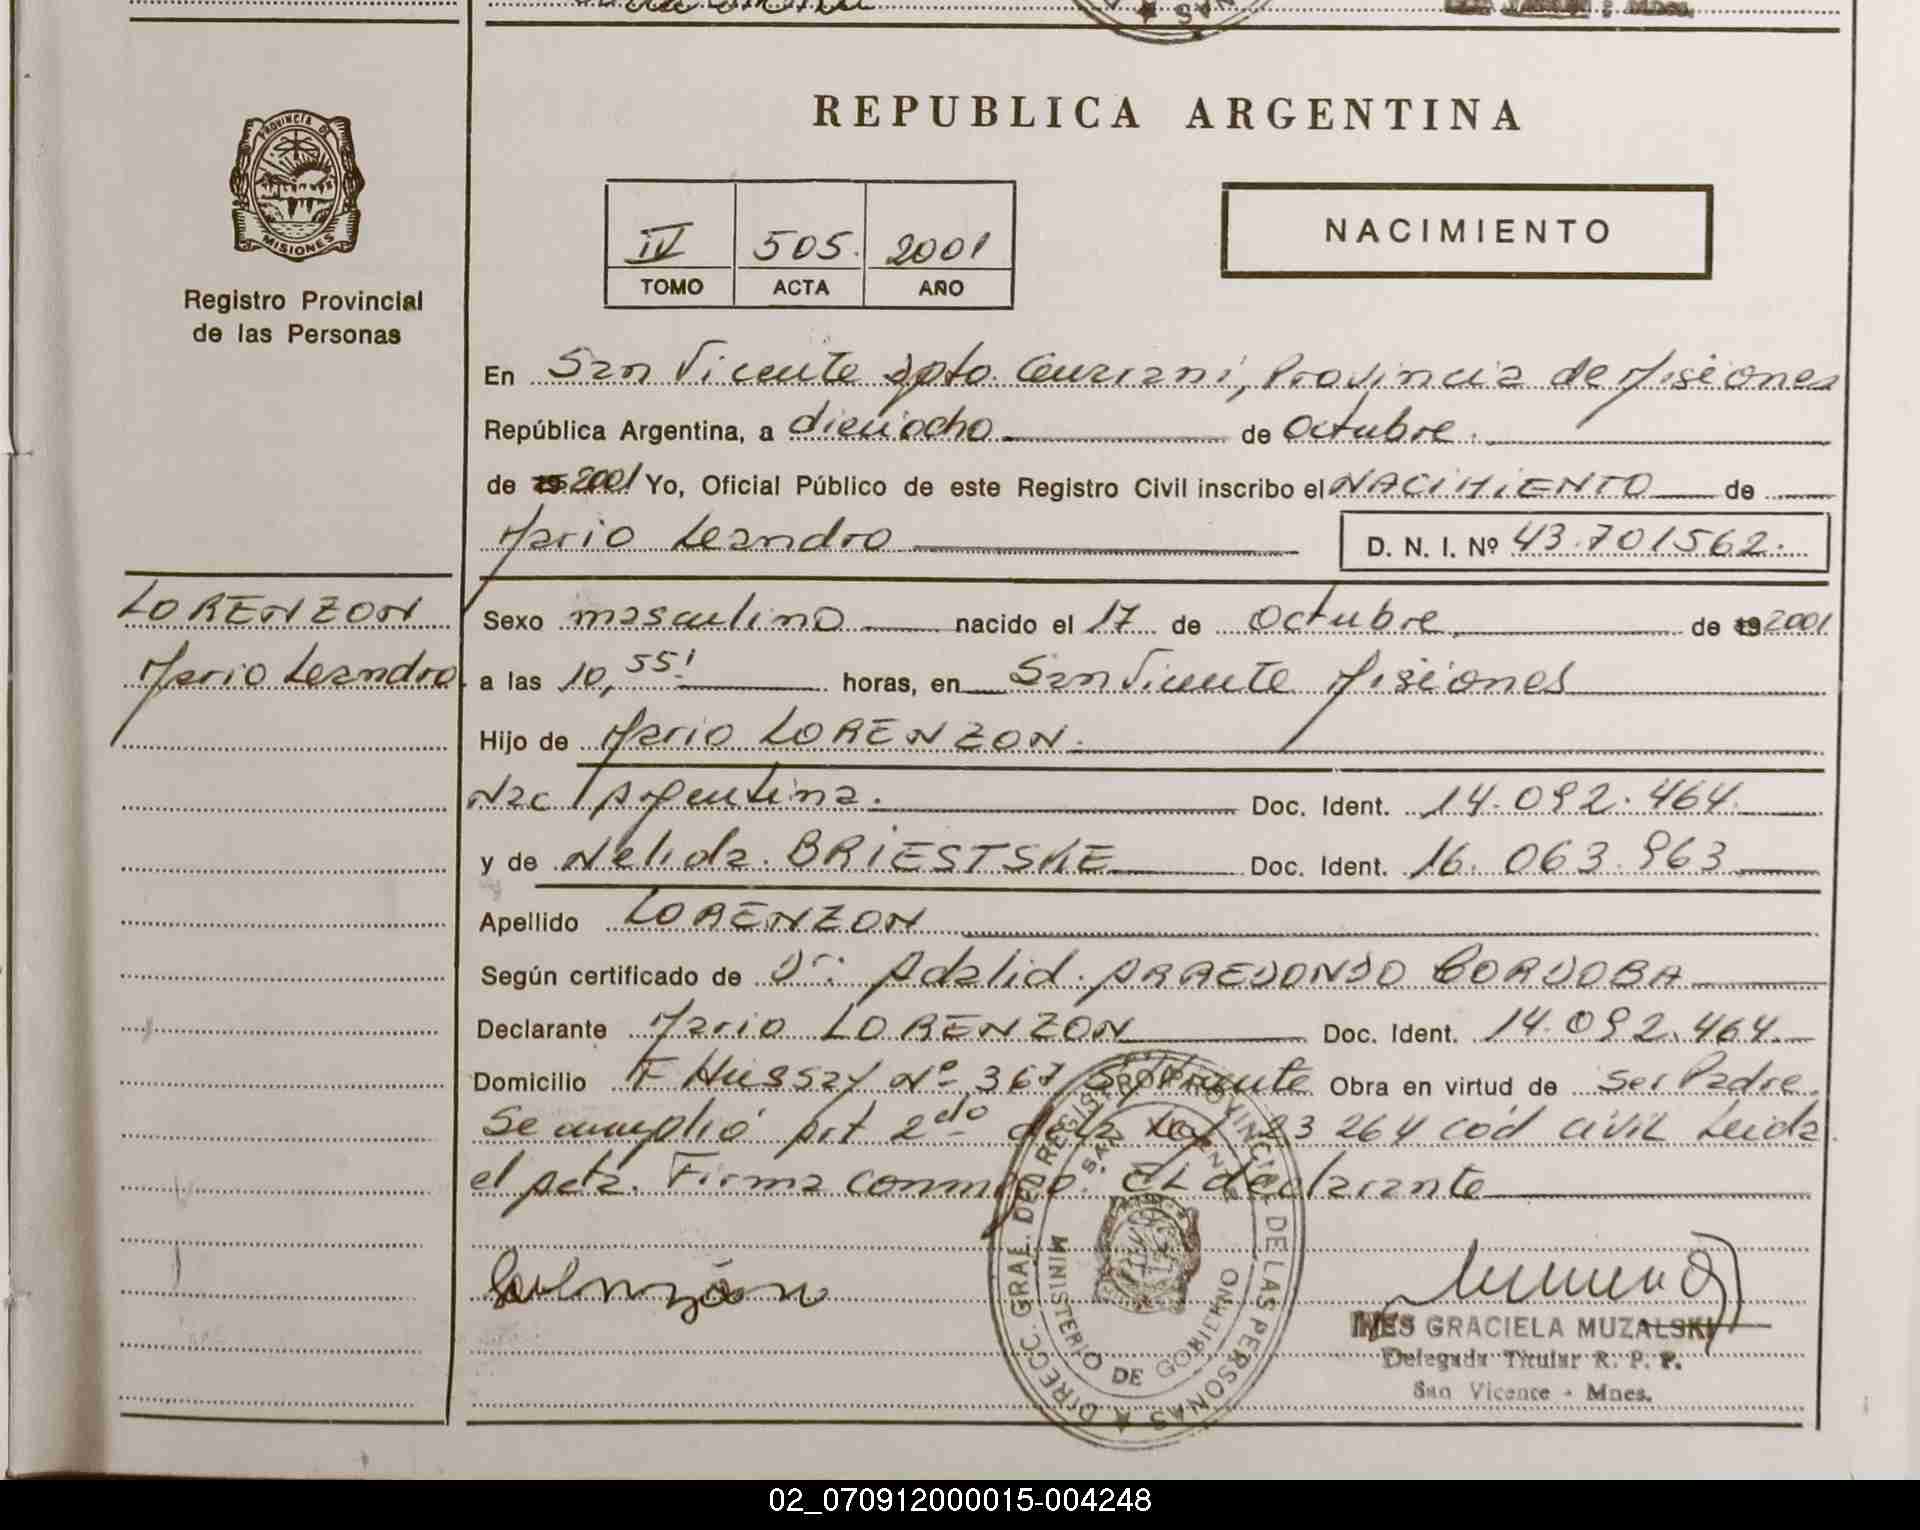 PROVINCIA DE
MISIONES
Registro Provincial
de las Personas
REPUBLICA ARGENTINA
IV 505. 2001
TOMO ACTA AÑO
NACIMIENTO
En San Vicente Dpto. Guarani, Provincia de Misiones
República Argentina, a dieciocho de Octubre.
de 19 2001 Yo, Oficial Público de este Registro Civil inscribo el NACIMIENTO de
Mario Leandro D. N. I. Nº 43.701562.
LORENZON
Mario Leandro
Sexo masculino nacido el 17 de Octubre de 19 2001
a las 10,55' horas, en San Vicente Misiones
Hijo de Mario LORENZON.
Nac Argentina. Doc. Ident. 14.092.464.
y de Nelida. BRIESTSKE Doc. Ident. 16.063.963
Apellido LORENZON
Según certificado de Dr: Adalid. ARREDONDO CORDOBA
Declarante Mario LORENZON Doc. Ident. 14.092.464.
Domicilio F Hussay Nº 367 S/Vicente Obra en virtud de ser Padre.
Se cumplió art 2do de la Ley 23 264 cód civil Leida
el Acta. Firma conmigo: EL declarante
DIRECC. GRAL. DEL REGISTRO PROVINCIAL DE LAS PERSONAS
SAN VICENTE
MINISTERIO DE GOBIERNO
INES GRACIELA MUZALSKI
Delegada Titular R. P. P.
San Vicente - Mnes.
02_070912000015-004248